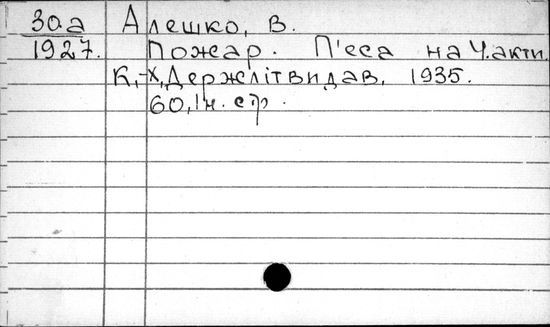 30.а Алешко, В.
1927. Пожар. П'еса на 4 акти.
К.-Х, Держлітвидав, 1935.
60, 1 н. стр.